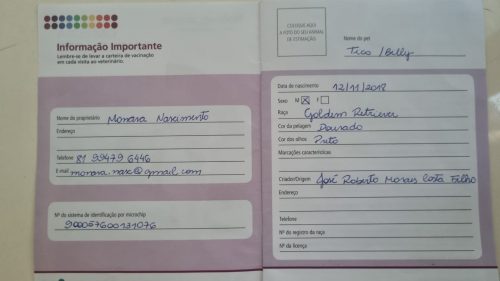 Informação Importante
Lembre-se de levar a carteira de vacinação
em cada visita ao veterinário.
Nome do proprietário Monara Nascimento
Endereço
Telefone 81 99479 6446
E.mail monara.nasc@gmail.com
Nº do sistema de identificação por microchip
900057600131076
COLOQUE AQUI
A FOTO DO SEU ANIMAL
DE ESTIMAÇÃO
Nome do pet
Tico / Billy
Data de nascimento 12/11/2018
Sexo M X F
Raça Goldem Retriever
Cor da pelagem Dourado
Cor dos olhos Preto
Marcações características
Criador/Origem José Roberto Morais Costa Filho
Endereço
Telefone
Nº do registro da raça
Nº da licença